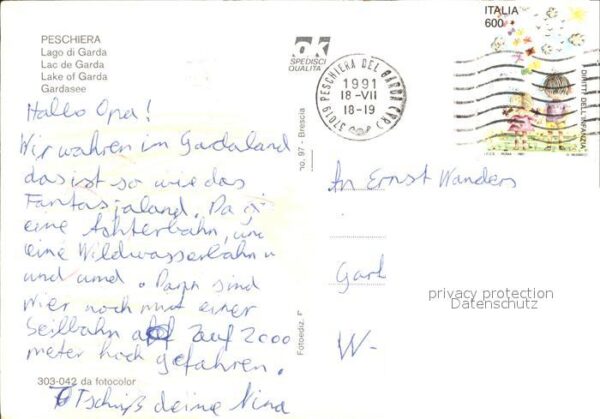 PESCHIERA
Lago di Garda
Lac de Garda
Lake of Garda
Gardasee
Hallo Opa!
Wir wahren im Gardaland
das ist so wie das
Fantasialand. Da
eine Achterbahn, und
eine Wildwasserbahn u
und und. Dann sind
wier noch mit einer
Seilbahn auf 2000
meter hoch gefahren.
Tschüß deine Nina
303-042 da fotocolor
ok
SPEDISCI
QUALITÀ
no. 97 - Brescia
Fotoediz.
37019 PESCHIERA DEL GARDA (VR)
1991
18-VII
18-19
ITALIA
600
DIRITTI DELL'INFANZIA
An Ernst Wanders
W-
privacy protection
Datenschutz